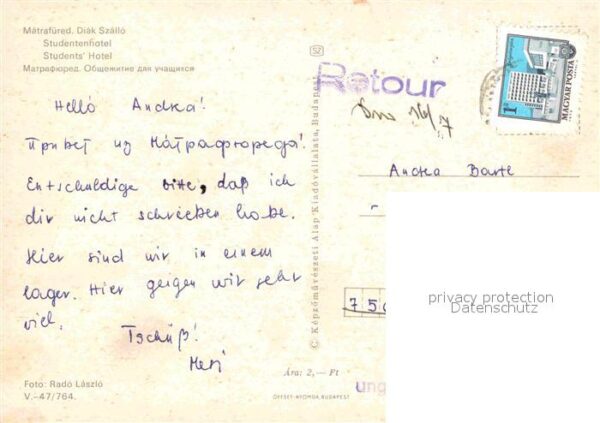 Mátrafüred. Diák Szálló
Studentenhotel
Students' Hotel
Матрафюред. Общежитие для учащихся
Helló Andrea!
Привет из Матрафюреда!
Entschuldige bitte, daß ich
dir nicht schrieben habe.
Hier sind wir in einem
lager. Hier geigen wir sehr
viel.
Tschüß!
Foto: Radó László
V.-47/764.
SZ
© Képzőművészeti Alap Kiadóvállalata, Budapest
Ára: 2,— Ft
OFFSET-NYOMDA, BUDAPEST
Retour
1 Ft
MAGYAR POSTA
Andrea
75
ung
privacy protection
Datenschutz